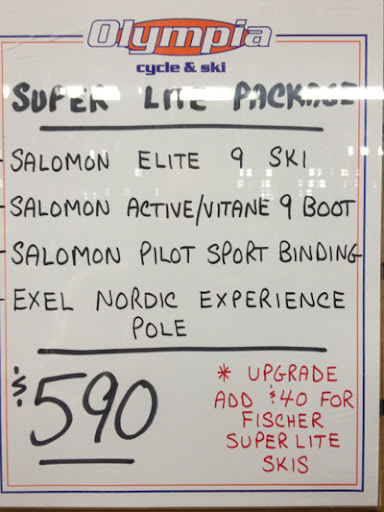 Olympia
cycle & ski
SUPER LITE PACKAGE
- SALOMON ELITE 9 SKI
- SALOMON ACTIVE/VITANE 9 BOOT
- SALOMON PILOT SPORT BINDING
- EXEL NORDIC EXPERIENCE
POLE
$590
* UPGRADE
ADD $40 FOR
FISCHER
SUPERLITE
SKIS